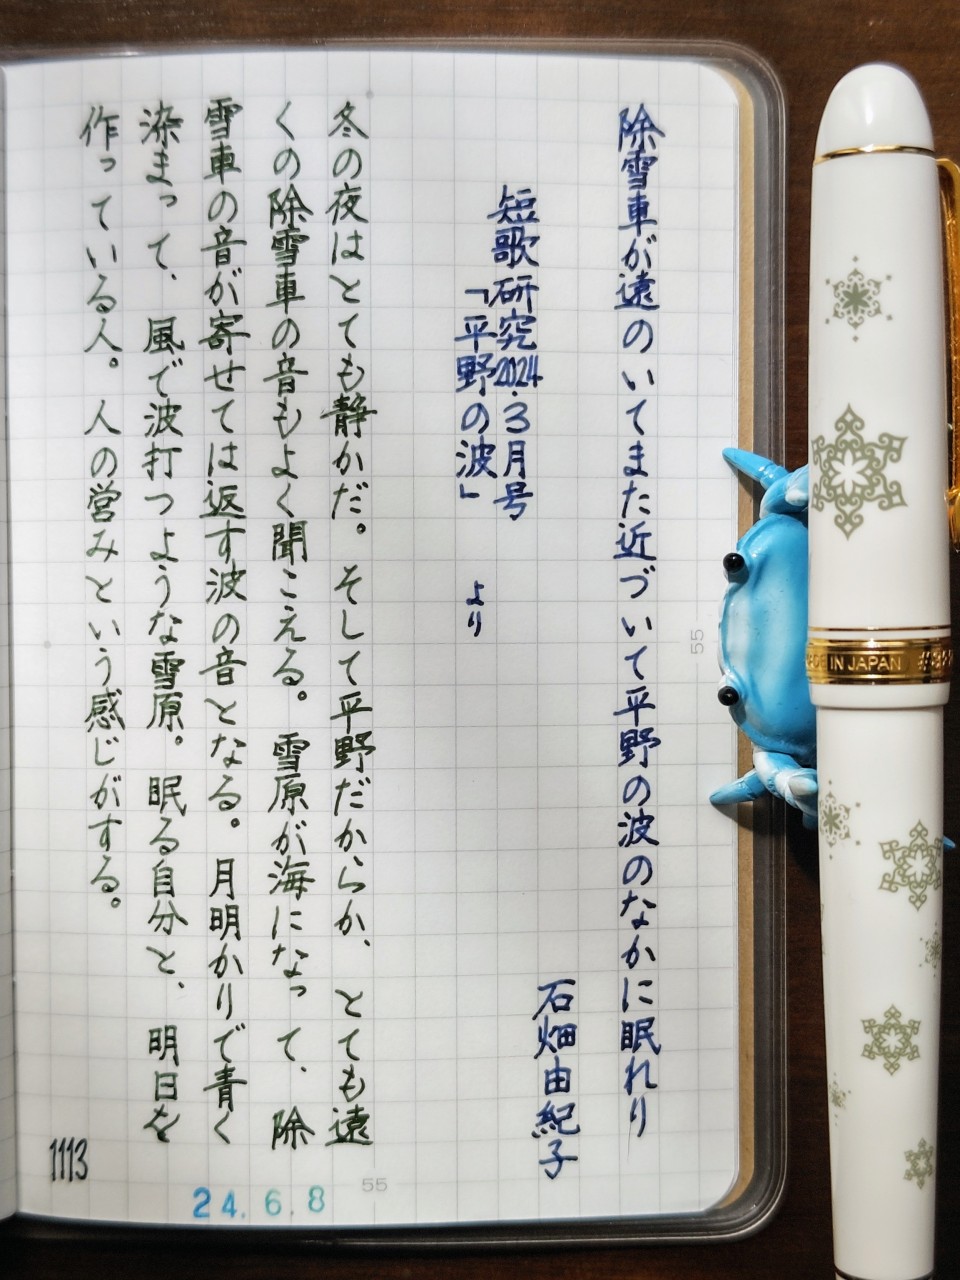 除雪車が遠のいてまた近づいて平野の波のなかに眠れり
石畑由紀子
短歌研究2024.3月号
「平野の波」 より
冬の夜はとても静かだ。そして平野だからか、とても遠
くの除雪車の音もよく聞こえる。雪原が海になって、除
雪車の音が寄せては返す波の音となる。月明かりで青く
染まって、風で波打つような雪原。眠る自分と、明日を
作っている人。人の営みという感じがする。
1113
24.6.8
55
55
MADE IN JAPAN